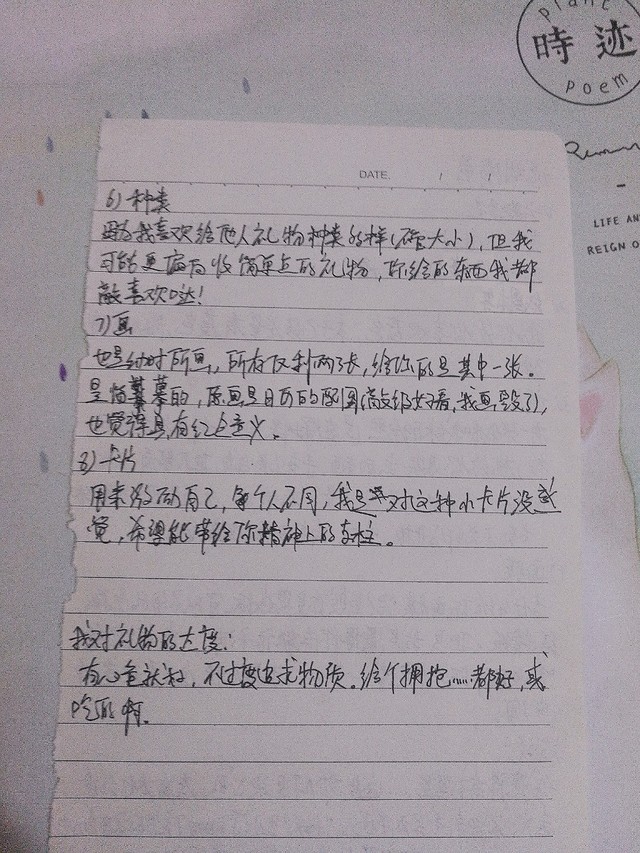 plant
時迹
poem
LIFE AN
REIGN O
DATE. / /
6) 种类
因为我喜欢给他人礼物种类多样(不管大小),但我
可能更偏向收简单点的礼物,你给的东西我都
敲喜欢哒!
7) 画
也是幼时所画,所有仅剩两张,给你的是其中一张。
是临摹的,原画是日历的配图(高级好看,我画毁了),
也觉得具有纪念意义。
8) 卡片
用来激励自己,每个人不同,我是对这种小卡片没感
觉,希望能带给你精神上的支柱。
我对礼物的态度:
有心意就好,不过度追求物质。给个拥抱……都好,或
吃的啊.